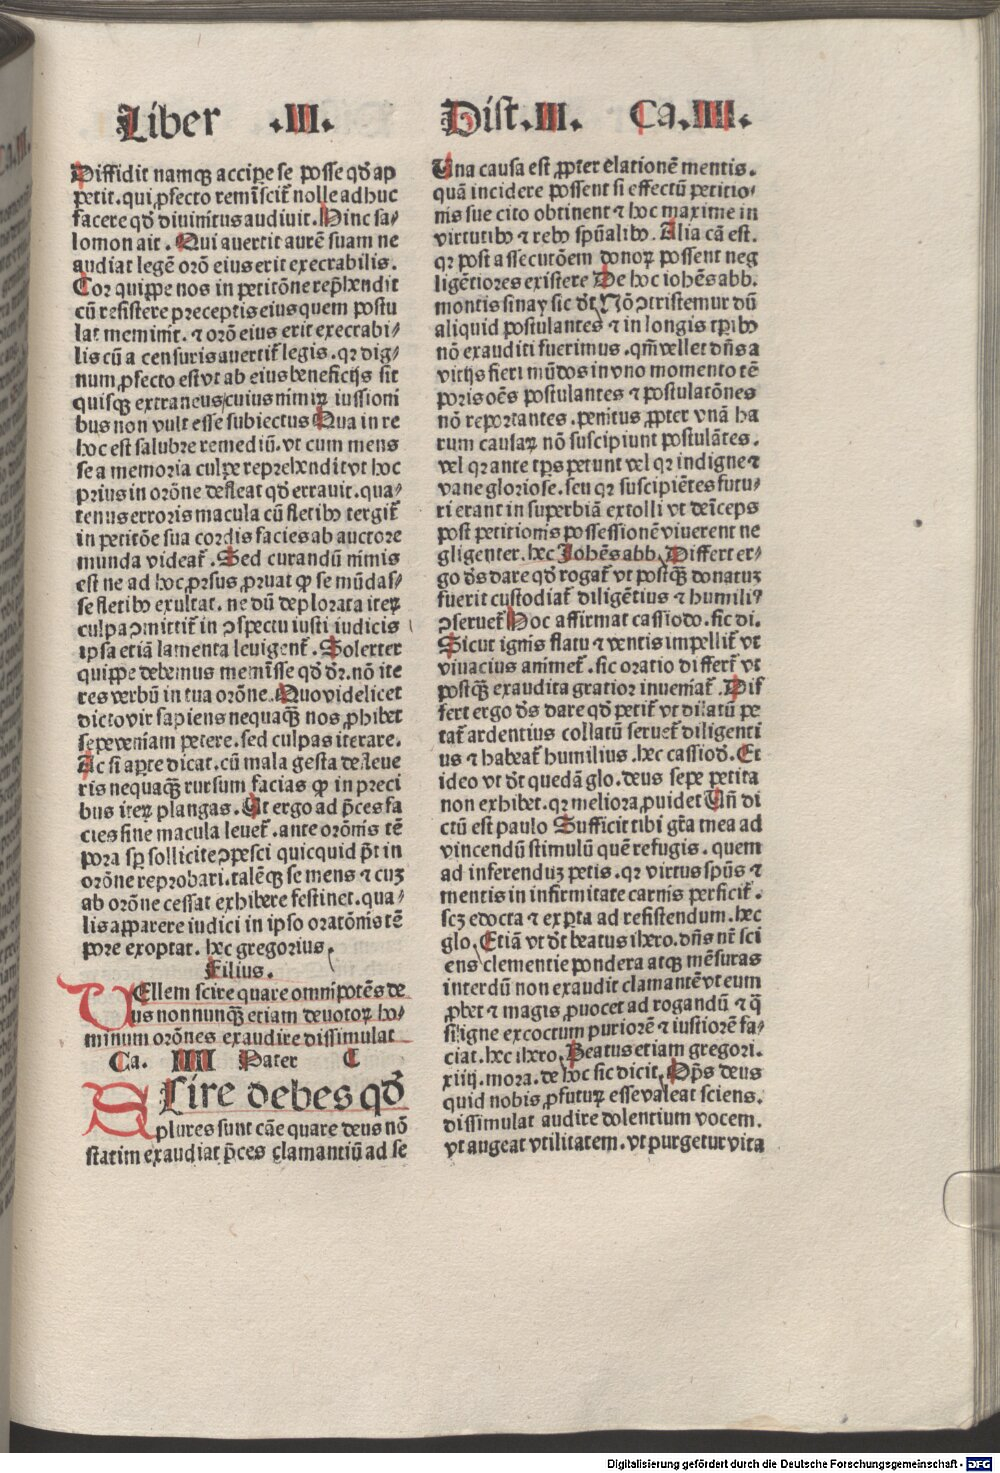 Liber .III. Dist.III. Ca.IIII.
Diffidit namqꝫ accipe se posse qđ ap
petit. qui ꝓfecto reminiscit̃ nolle adhuc
facere qđ diuinitus audiuit. Hinc sa⸗
lomon ait. Qui auertit aurē suam ne
audiat legē orō eius erit execrabilis.
Cor quippe nos in petitōne rep̄hendit
cū resistere preceptis eius quem postu
lat meminit. ⁊ orō eius erit execrabi⸗
lis cū a censuris auertit̃ legis. qꝛ dig⸗
num ꝓfecto est vt ab eius beneficijs sit
quisqꝫ extraneus cuius nimiꝝ iussioni
bus non vult esse subiectus Qua in re
hoc est salubre remediū. vt cum mens
se a memoria culpe reprehendit vt hoc
prius in orōne defleat qđ errauit. qua⸗
tenus erroris macula cū fletibꝰ tergit̃
in petitōe sua cordis facies ab auctore
munda videat̃. Sed curandū nimis
est ne ad hoc ꝓrsus ꝓruat ꝙ se mūdas⸗
se fletibꝰ exultat. ne dū deplorata iteꝝ
culpa ꝯmittit̃ in ꝯspectu iusti iudicis
ipsa etiā lamenta leuigent̃. Solerter
quippe debemus meminisse qđ dr̄. nō ite
res verbū in tua orōne. Quo videlicet
dicto vir sapiens nequaꝙ̃ nos ꝓhibet
sepe veniam petere. sed culpas iterare.
Ac si aꝑte dicat. cū mala gesta defleue
ris nequaꝙ̃ rursum facias ꝙ in preci
bus iteꝝ plangas. Ut ergo ad p̄ces fa
cies sine macula leuet̃. ante orōnis tē
pora sp̄ sollicite ꝯpesci quicquid p̄t in
orōne reprobari. talēqꝫ se mens ⁊ cuꝫ
ab orōne cessat exhibere festinet. qua⸗
lis apparere iudici in ipso oratōnis tē
pore exoptat. hec gregorius.
Filius.
VEllem scire quare omnipotēs de
us nonnunꝙ̃ etiam deuotoꝝ ho⸗
minum orōnes exaudire dissimulat
Ca. IIII Pater C
SCire debes qđ
plures sunt cāe quare deus nō
statim exaudiat p̄ces clamantiū ad se
Una causa est ꝓpter elationē mentis.
quā incidere possent si effectū petitio⸗
nis sue cito obtinent ⁊ hoc maxime in
virtutibꝰ ⁊ rebꝰ spūalibꝰ. Alia cā est.
qꝛ post assecutōem donoꝝ possent neg
ligētiores existere De hoc iohēs abb.
montis sinay sic dt̄. Nō ꝯtristemur dū
aliquid postulantes ⁊ in longis tp̄ibꝰ
nō exauditi fuerimus. qm̄ vellet dn̄s a
vitijs fieri mūdos in vno momento tē
poris oēs postulantes ⁊ postulatōnes
nō reportantes. penitus ꝓpter vnā ha
rum causaꝝ nō suscipiunt postulātes.
vel qꝛ ante tp̄s petunt vel qꝛ indigne ⁊
vane gloriose. seu qꝛ suscipiētes futu⸗
ri erant in superbiā extolli vt deīceps
post petitionis possessionē viuerent ne
gligenter. hec Johēs abb. Differt er⸗
go ds̄ dare qđ rogat̃ vt postꝙ̃ donatuꝫ
fuerit custodiat̃ diligētius ⁊ humiliꝰ
ꝯseruet̃ Hoc affirmat cassiodo. sic di.
Sicut ignis flatu ⁊ ventis impellit̃ vt
viuacius animet̃. sic oratio differt̃ vt
postꝙ̃ exaudita gratior inueniat̃. Dif
fert ergo ds̄ dare qđ petit̃ vt dilatū pe
tat̃ ardentius collatū seruet̃ diligenti
us ⁊ habeat̃ humilius. hec cassiođ. Et
ideo vt dt̄ quedā glo. deus sepe petita
non exhibet. qꝛ meliora ꝓuidet Un̄ di
ctū est paulo Sufficit tibi gr̄a mea ad
vincendū stimulū quē refugis. quem
ad inferenduꝫ petis. qꝛ virtus spūs ⁊
mentis in infirmitate carnis perficit̃.
scꝫ edocta ⁊ exꝑta ad resistendum. hec
glo. Etiā vt dt̄ beatus ihero. dn̄s nr̄ sci
ens clementie pondera atqꝫ mēsuras
interdū non exaudit clamantē vt eum
ꝓbet ⁊ magis ꝓuocet ad rogandū ⁊ q̄
si igne excoctum puriorē ⁊ iustiorē fa⸗
ciat. hec ihero. Beatus etiam gregori.
xiiij. mora. de hoc sic dicit. Op̄s deus
quid nobis ꝓfuturꝝ esse valeat sciens.
dissimulat audire dolentium vocem.
vt augeat vtilitatem. vt purgetur vita
Digitalisierung gefördert durch die Deutsche Forschungsgemeinschaft - DFG